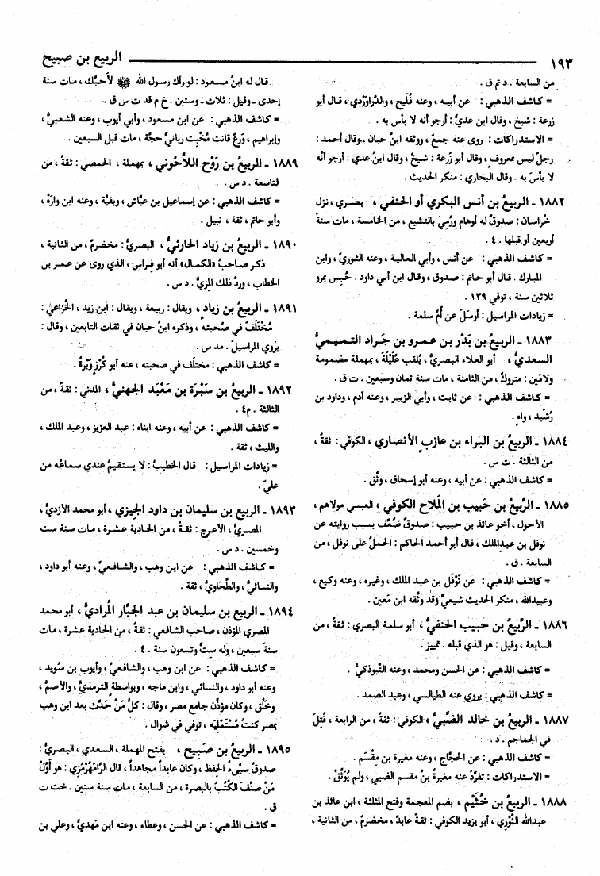 ١٩٣
الربيع بن صبيح
من السابعة . د تم ق .
= كاشف الذهبي : عن أبيه ، وعنه فُلَيح ، والدَّراوَرْدي ، قال أبو
زرعة : شيخ ، وقال ابن عديّ : أرجو أنه لا بأس به .
= الاستدراكات : روى عنه جمعٌ ، ووثقه ابنُ حبان . وقال أحمد :
رجلٌ ليس بمعروف ، وقال أبو زُرعة : شيخٌ ، وقال ابنُ عدي : أرجو أنَّه
لا بأسَ به . وقال البخاري : منكر الحديث .
١٨٨٢ ـ الربيعُ بن أنس البكري أو الحنفي ، بصْري ، نزل
خراسان : صدوقٌ له أوهام ورُمِيَ بالتشيع ، من الخامسة ، مات سنةَ
أربعين أو قبلها . ٤ .
= كاشف الذهبي : عن أنَس ، وأبي العالية ، وعنه الثوريُّ ، وابن
المبارك . قال أبو حاتم : صدوق ، وقال ابن أبي داود . حُبِس بمرو
ثلاثين سنة ، توفي ١٣٩ .
= زيادات المراسيل : أرسلَ عن أُمِّ سلمة .
١٨٨٣ ـ الربيعُ بن بَدْر بن عمرو بن جَراد التميميُّ
السعديُّ ، أبو العلاء البصريُّ ، يُلقب عُلَيْلَة ، بمهملة مضمومة
ولامَين : متروكٌ ، من الثامنة ، مات سنة ثمان وسبعين . ت ق .
= كاشف الذهبي : عن ثابت ، وأبي الزبير ، وعنه آدم ، وداود بن
رُشيد ، واهٍ .
١٨٨٤ ـ الربيعُ بن البراء بن عازب الأنصاري ، الكوفي : ثقةٌ ،
من الثالثة . ت س .
= كاشف الذهبي : عن أبيه ، وعنه أبو إسحاق ، وثّق .
١٨٨٥ ـ الرَّبيعُ بن حَبيب بن المَلَّاح الكوفي ، العبسي مولاهم ،
الأحول ، أخو عائذ بن حبيب : صدوقٌ ضُعِّفَ بسبب روايته عن
نوفل بن عبدالملك ، قال أبو أحمد الحاكم : الحملُ على نوفل ، من
السابعة . ق .
= كاشف الذهبي : عن نَوْفل بن عبد الملك ، وغيره ، وعنه وكيع ،
وعبيدالله ، منكر الحديث شيعيٌّ وَقد وثّقه ابن مَعين .
١٨٨٦ ـ الرَّبيعُ بن حبيب الحنفيُّ ، أبو سلمة البصري : ثقةٌ ، من
السابعة ، وقيل : هو الذي قبله . تمييز .
= كاشف الذهبي : عن الحسن ومحمد ، وعنه التَّبُوذَكيُّ .
= كاشف الذهبي : يروي عنه الطيالسي ، وعبد الصمد .
١٨٨٧ ـ الربيعُ بن خالد الضَّبيُّ ، الكوفي : ثقةٌ ، من الرابعة ، قُتِلَ
في الجماجم . د .
= كاشف الذهبي : عن الحجَّاج ، وعنه مغيرة بن مِقْسَم .
= الاستدراكات : تفرَّدَ عنه مغيرةُ بنُ مقسم الضبي ، ولم يُوثَّقْ .
١٨٨٨ ـ الربيعُ بن خُثَيْم ، بضم المعجمة وفتح المثلثة ، ابن عائذ بن
عبدالله الثَّوْري ، أبو يزيد الكوفي : ثقةٌ عابدٌ ، مخضرمٌ ، من الثانية ،
قال له ابنُ مسعود : لو رآك رسول الله ﷺ لأحبَّك ، مات سنة
إحدى ، وقيل : ثلاث ، وستين . خ م قد ت س ق .
= كاشف الذهبي : عن ابن مسعود ، وأبي أيوب ، وعنه الشعبيُّ ،
وإبراهيم ، وَرِعٌ قانت مُخْبِت ربانيٌّ حجَّة ، مات قبل السبعين .
١٨٨٩ ـ الربيعُ بن رَوْح اللاحُوني ، بمهملة ، الحمصي : ثقةٌ ، من
التاسعة . د س .
= كاشف الذهبي : عن إسماعيل بن عيّاش ، وبقيّة ، وعنه ابن وارَة ،
وأبو حاتم ، ثقة ، نبيل .
١٨٩٠ ـ الربيعُ بن زياد الحارثيُّ ، البصريُّ : مخضرمٌ ، من الثانية ،
ذكر صاحبُ «الكمال» أنه أبو فراس ، الذي روى عن عمر بن
الخطاب ، وردَّ ذلك المِزيُّ . د س .
١٨٩١ ـ الربيعُ بن زياد ، ويقال : ربيعة ، ويقال : ابن زيد ، الخُزاعيُّ :
مُختَلَفٌ في صُحبتِه ، وذكره ابنُ حبان في ثقات التابعين ، وقال :
يروي المراسيلَ . مد س .
= كاشف الذهبي : مختلف في صحبته ، عنه أبو كُرْزٍ وَبْرَةُ .
١٨٩٢ ـ الربيعُ بن سَبْرَة بن مَعْبَد الجهنيُّ ، المدني : ثقةٌ ، من
الثالثة . م ٤ .
= كاشف الذهبي : عن أبيه ، وعنه ابناه : عبد العزيز ، وعبد الملك ،
والليث ، ثقة .
= زيادات المراسيل : قال الخطيبُ : لا يستقيم عندي سماعُه من
عليّ .
١٨٩٣ ـ الربيعُ بن سليمان بن داود الجِيزي ، أبو محمد الأزديُّ ،
المصريُّ ، الأعرج : ثقةٌ ، من الحادية عشرة ، مات سنة ست
وخمسين . د س .
= كاشف الذهبي : عن ابن وهب ، والشافعيِّ ، وعنه أبو داود ،
والنسائيُّ ، والطَّحاويُّ ، ثقة .
١٨٩٤ ـ الربيع بن سليمان بن عبد الجبَّار المُراديُّ ، أبو محمد
المصري المؤذِّن ، صاحب الشافعي : ثقةٌ ، من الحادية عشرة ، مات
سنة سبعين ، وله ستٌّ وتسعون سنة . ٤ .
= كاشف الذهبي : عن ابن وهب ، والشافعيِّ ، وأيوب بن سُويد ،
وعنه أبو داود ، والنسائي ، وابن ماجه ، وبواسطة الترمذيُّ ، والأصمّ ،
وخَلْق ، وكان مؤذّن جامع مصر ، وقال : كلُّ مَنْ حَدَّث بعد ابن وهب
بمصر كنتُ مُسْتَملِيَه ، توفي في شوال .
١٨٩٥ ـ الربيعُ بن صَبِيح ، بفتح المهملة ، السعدي ، البصريُّ :
صدوقٌ سيِّىءُ الحِفظ ، وكان عابداً مجاهداً ، قال الرَّامَهُرْمُزي : هو أوَّلُ
مَنْ صنف الكُتُبَ بالبصرة ، من السابعة ، مات سنة ستين . خت ت
ق .
= كاشف الذهبي : عن الحسن ، وعطاء ، وعنه ابن مَهديٍّ ، وعلي بن